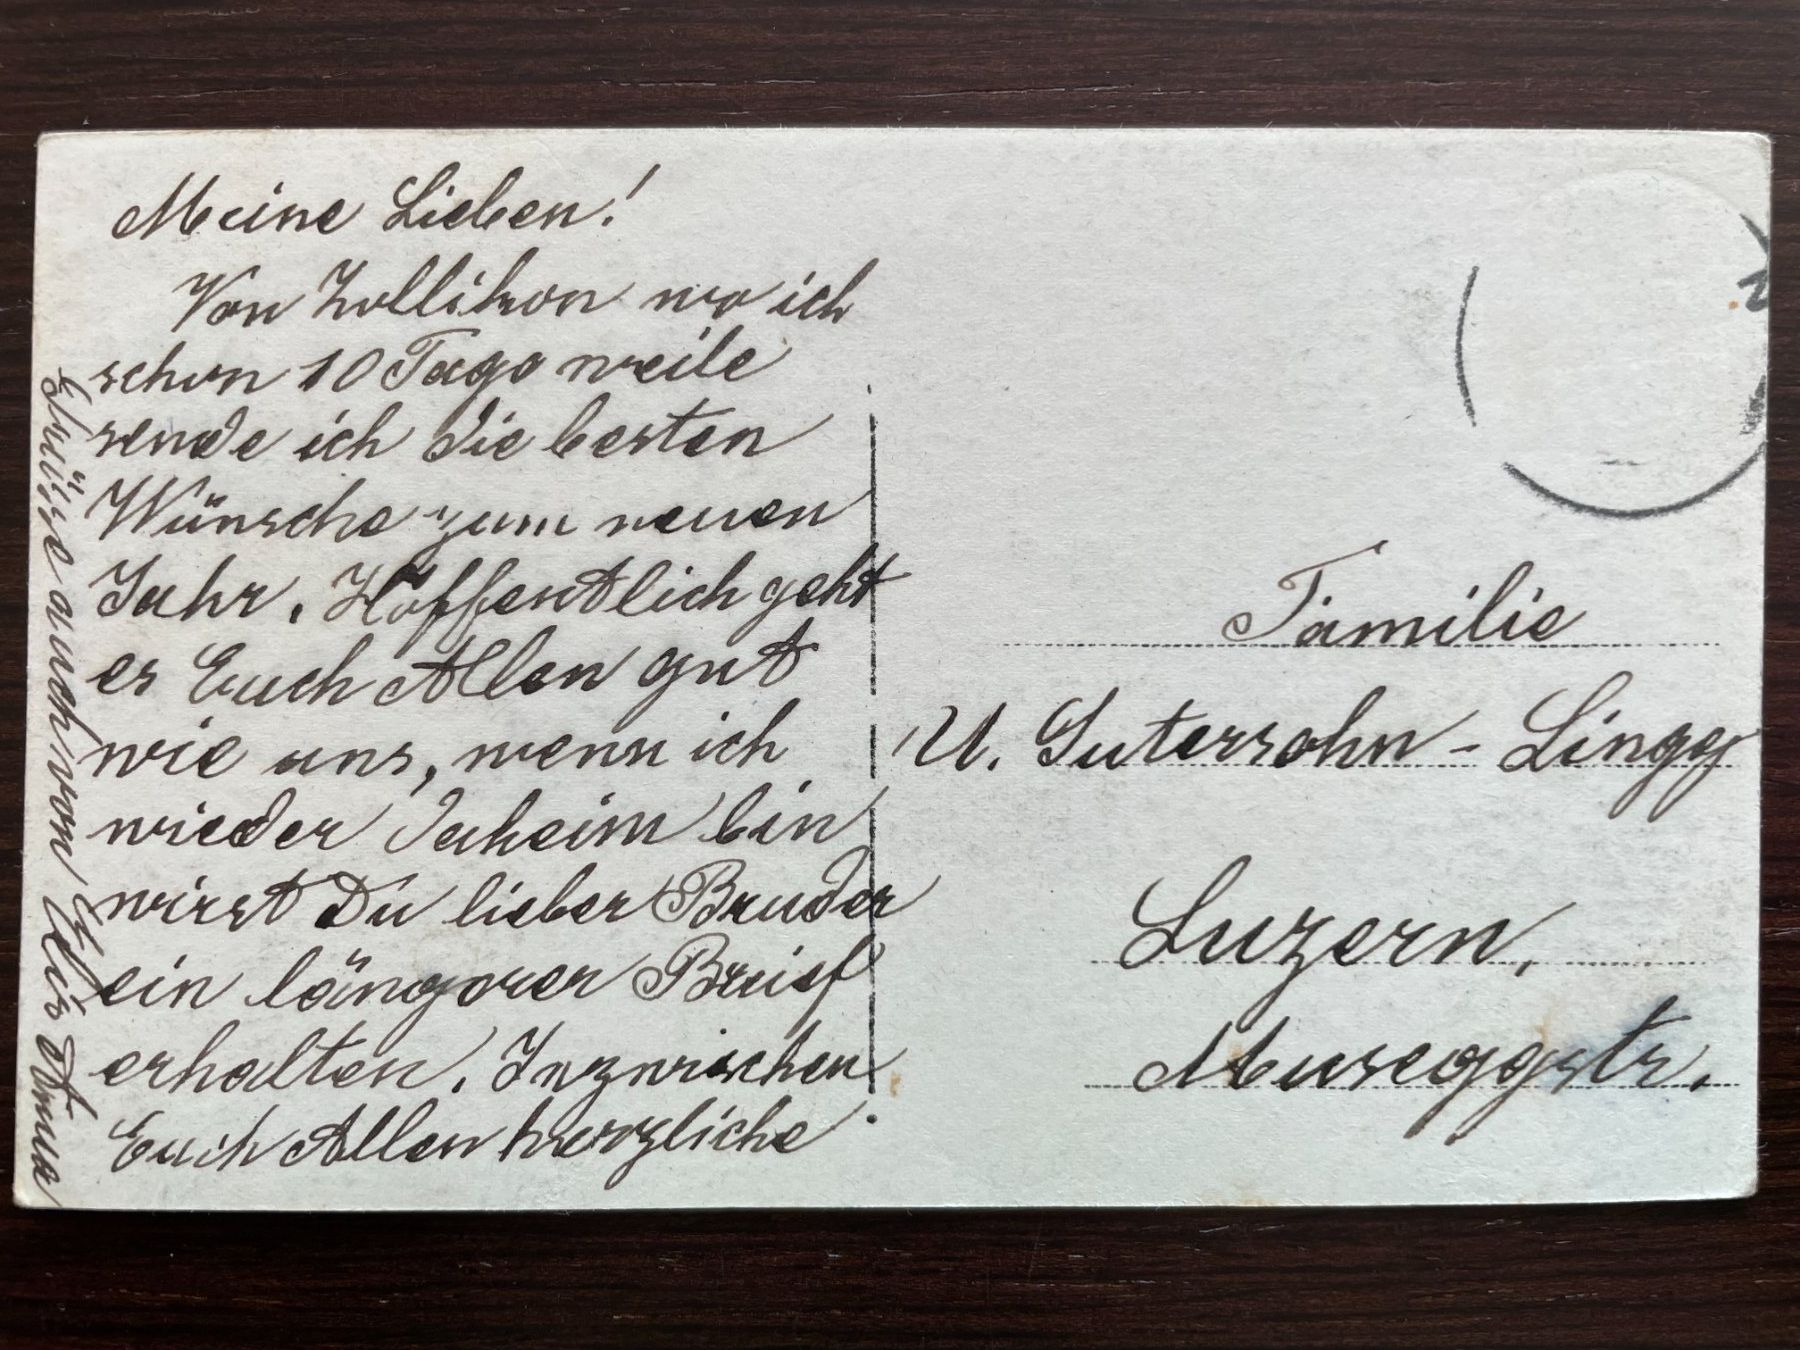 Meine Lieben!
Von Zollikon wo ich
schon 10 Tage weile
sende ich die besten
Wünsche zum neuen
Jahr. Hoffentlich geht
es Euch Allen gut
wie uns, wenn ich
wieder daheim bin
wirst Du lieber Bruder
ein längerer Brief
erhalten. Inzwischen
Euch Allen herzliche
Grüsse auch von Elis Anna
Familie
U. Gutersohn - Lingg
Luzern,
Museggstr.